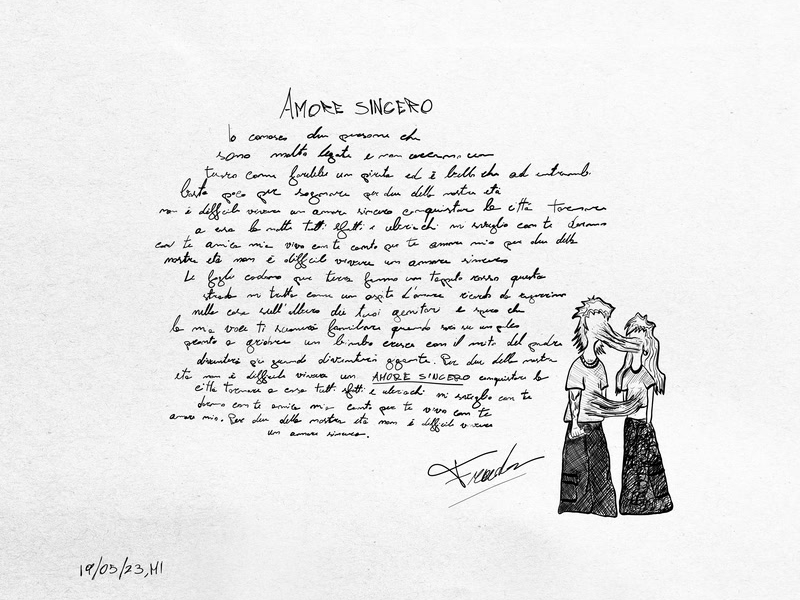 AMORE SINCERO
Io conosco due persone che
sono molto legate e non
come farebbe un pirata ed è bello che ad entrambi
basta poco per sognare per due della nostra età
non è difficile vivere un amore sincero conquistar la città tornare
a casa la notte tutti sfatti e ubriachi mi sveglio con te
con te amica mia vivo con te canto per te amore mio per due della
nostra età non è difficile vivere un amore sincero
Le foglie cadono per terra fanno un tappeto rosso questa
strada mi tratta come un ospite d'onore ricordo
nella casa sull'albero dei tuoi genitori e spero che
la mia voce ti suonerà familiare quando sei
pronto a gridare un bimbo cresce con il mito del padre
diventerà più grande diventerà gigante. Per due della nostra
età non è difficile vivere un AMORE SINCERO conquistare la
città tornare a casa tutti sfatti e ubriachi mi sveglio con te
dormo con te amica mia canto per te vivo con te
amore mio. Per due della nostra età non è difficile vivere
un amore sincero.
19/05/23, MI